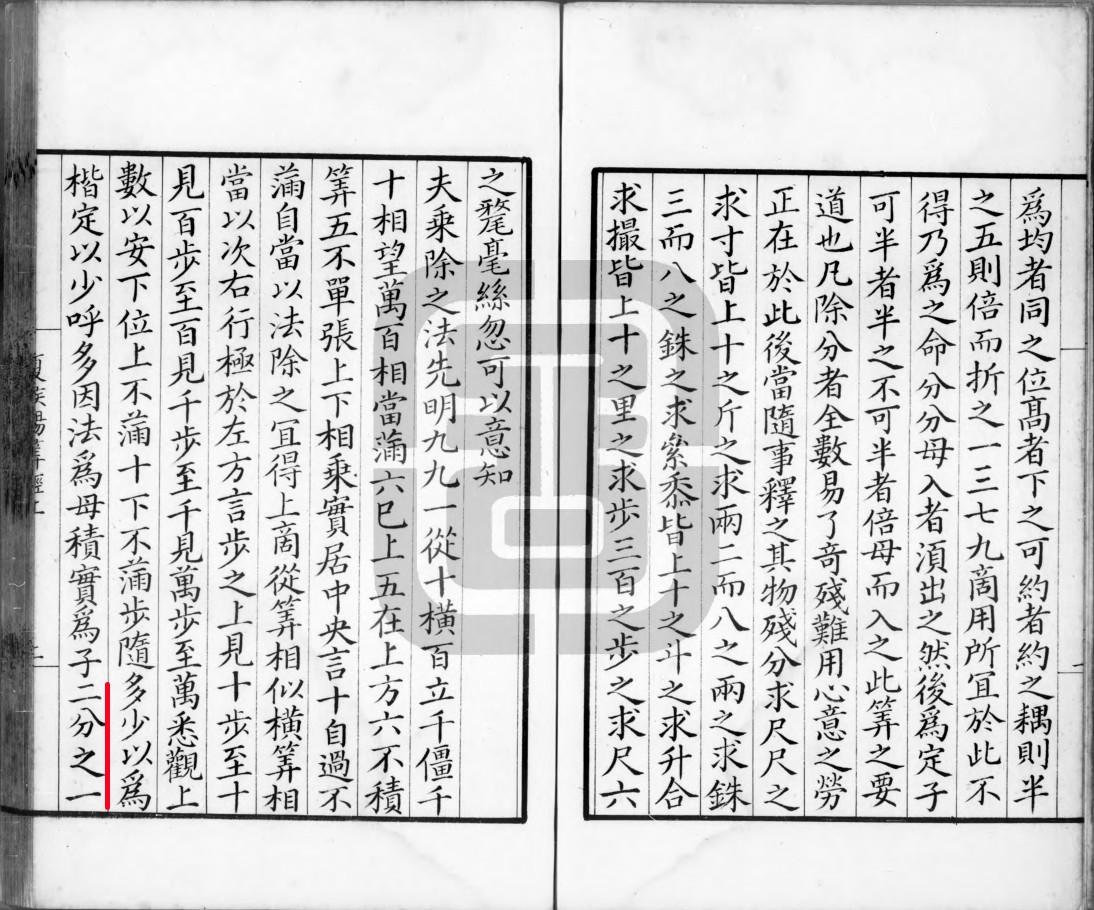 爲均者同之位髙者下之可約者約之耦則半
之五則倍而折之一三七九啇用所冝於此不
得乃爲之命分分母入者湏出之然後爲定子
可半者半之不可半者倍母而入之此筭之要
道也凡除分者全數易了竒殘難用心意之勞
正在於此後當隨事釋之其物殘分求尺尺之
求寸皆上十之斤之求兩二而八之兩之求銖
三而八之銖之求絫黍皆上十之斗之求升合
求撮皆上十之里之求步三百之步之求尺六
之氂毫絲忽可以意知
夫乘除之法先明九九一從十橫百立千僵千
十相望萬百相當滿六已上五在上方六不積
筭五不單張上下相乘實居中央言十自過不
滿自當以法除之冝得上啇從筭相似橫筭相
當以次右行極於左方言步之上見十步至十
見百步至百見千步至千見萬步至萬悉觀上
數以安下位上不滿十下不滿步隨多少以爲
楷定以少呼多因法爲母積實爲子二分之一
夏侯陽筭經上